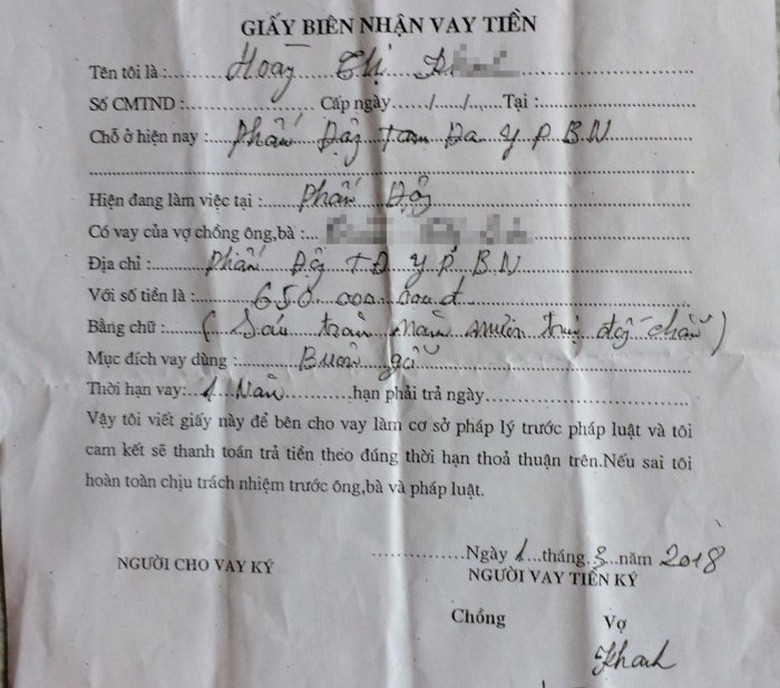 GIẤY BIÊN NHẬN VAY TIỀN
Tên tôi là :.... Hoàng Thị
Số CMTND :.................... Cấp ngày....../....../....... Tại :............................
Chỗ ở hiện nay : Phấn Động Tam Đa Y.P.B.N
Hiện đang làm việc tại : Phấn Động
Có vay của vợ chồng ông,bà :
Địa chỉ : Phấn Động TĐ Y.P.B.N
Với số tiền là : 650.000.000đ
Bằng chữ : ( Sáu trăm năm mươi triệu đồng chẵn )
Mục đích vay dùng : Buôn gỗ
Thời hạn vay: 1 Năm ............hạn phải trả ngày..............................
Vậy tôi viết giấy này để bên cho vay làm cơ sở pháp lý trước pháp luật và tôi
cam kết sẽ thanh toán trả tiền theo đúng thời hạn thoả thuận trên.Nếu sai tôi
hoàn toàn chịu trách nhiệm trước ông,bà và pháp luật.
................Ngày 1 ...tháng 3 ...năm 2018
NGƯỜI CHO VAY KÝ NGƯỜI VAY TIỀN KÝ
Chồng Vợ
Khanh